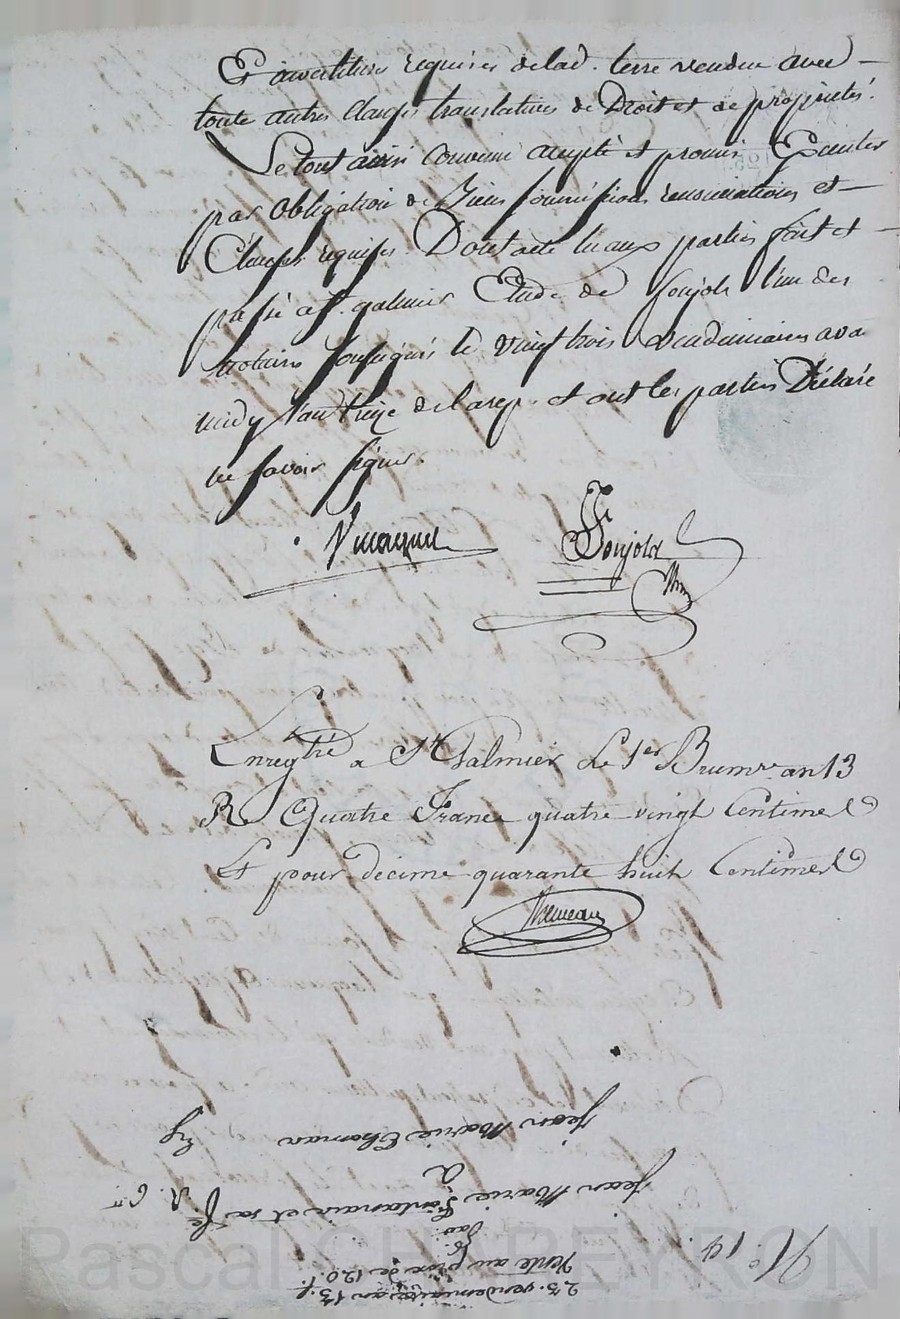 Et investiture requises de lad. terre vendue avec
toute autres clauses translatives de Droit et de propriétés.
Le tout ainsi convenu accepté et promis Exécuter
par obligation de Biens soumissions renonciations et
Clauses requises. Dont acte lu aux parties fait et
passé a St. galmier Etude de Soujols l'un des
notaires soussignés le vingt trois vendemiaire avan
midy l'an treize de la rep. et ont les parties Déclaré
ne savoir signer.
Soujols
Enregtré a St Galmier Le 1er Brumre an 13
R Quatre Francs quatre vingt Centimes
Et pour décime quarante huit Centimes
23. vendemiaire an 13.
Vente au prix de 120 f.
par
Jean Marie Fontanain et sa fe
A
Jean Marie
N° 14.
Pascal CHAPEYRON